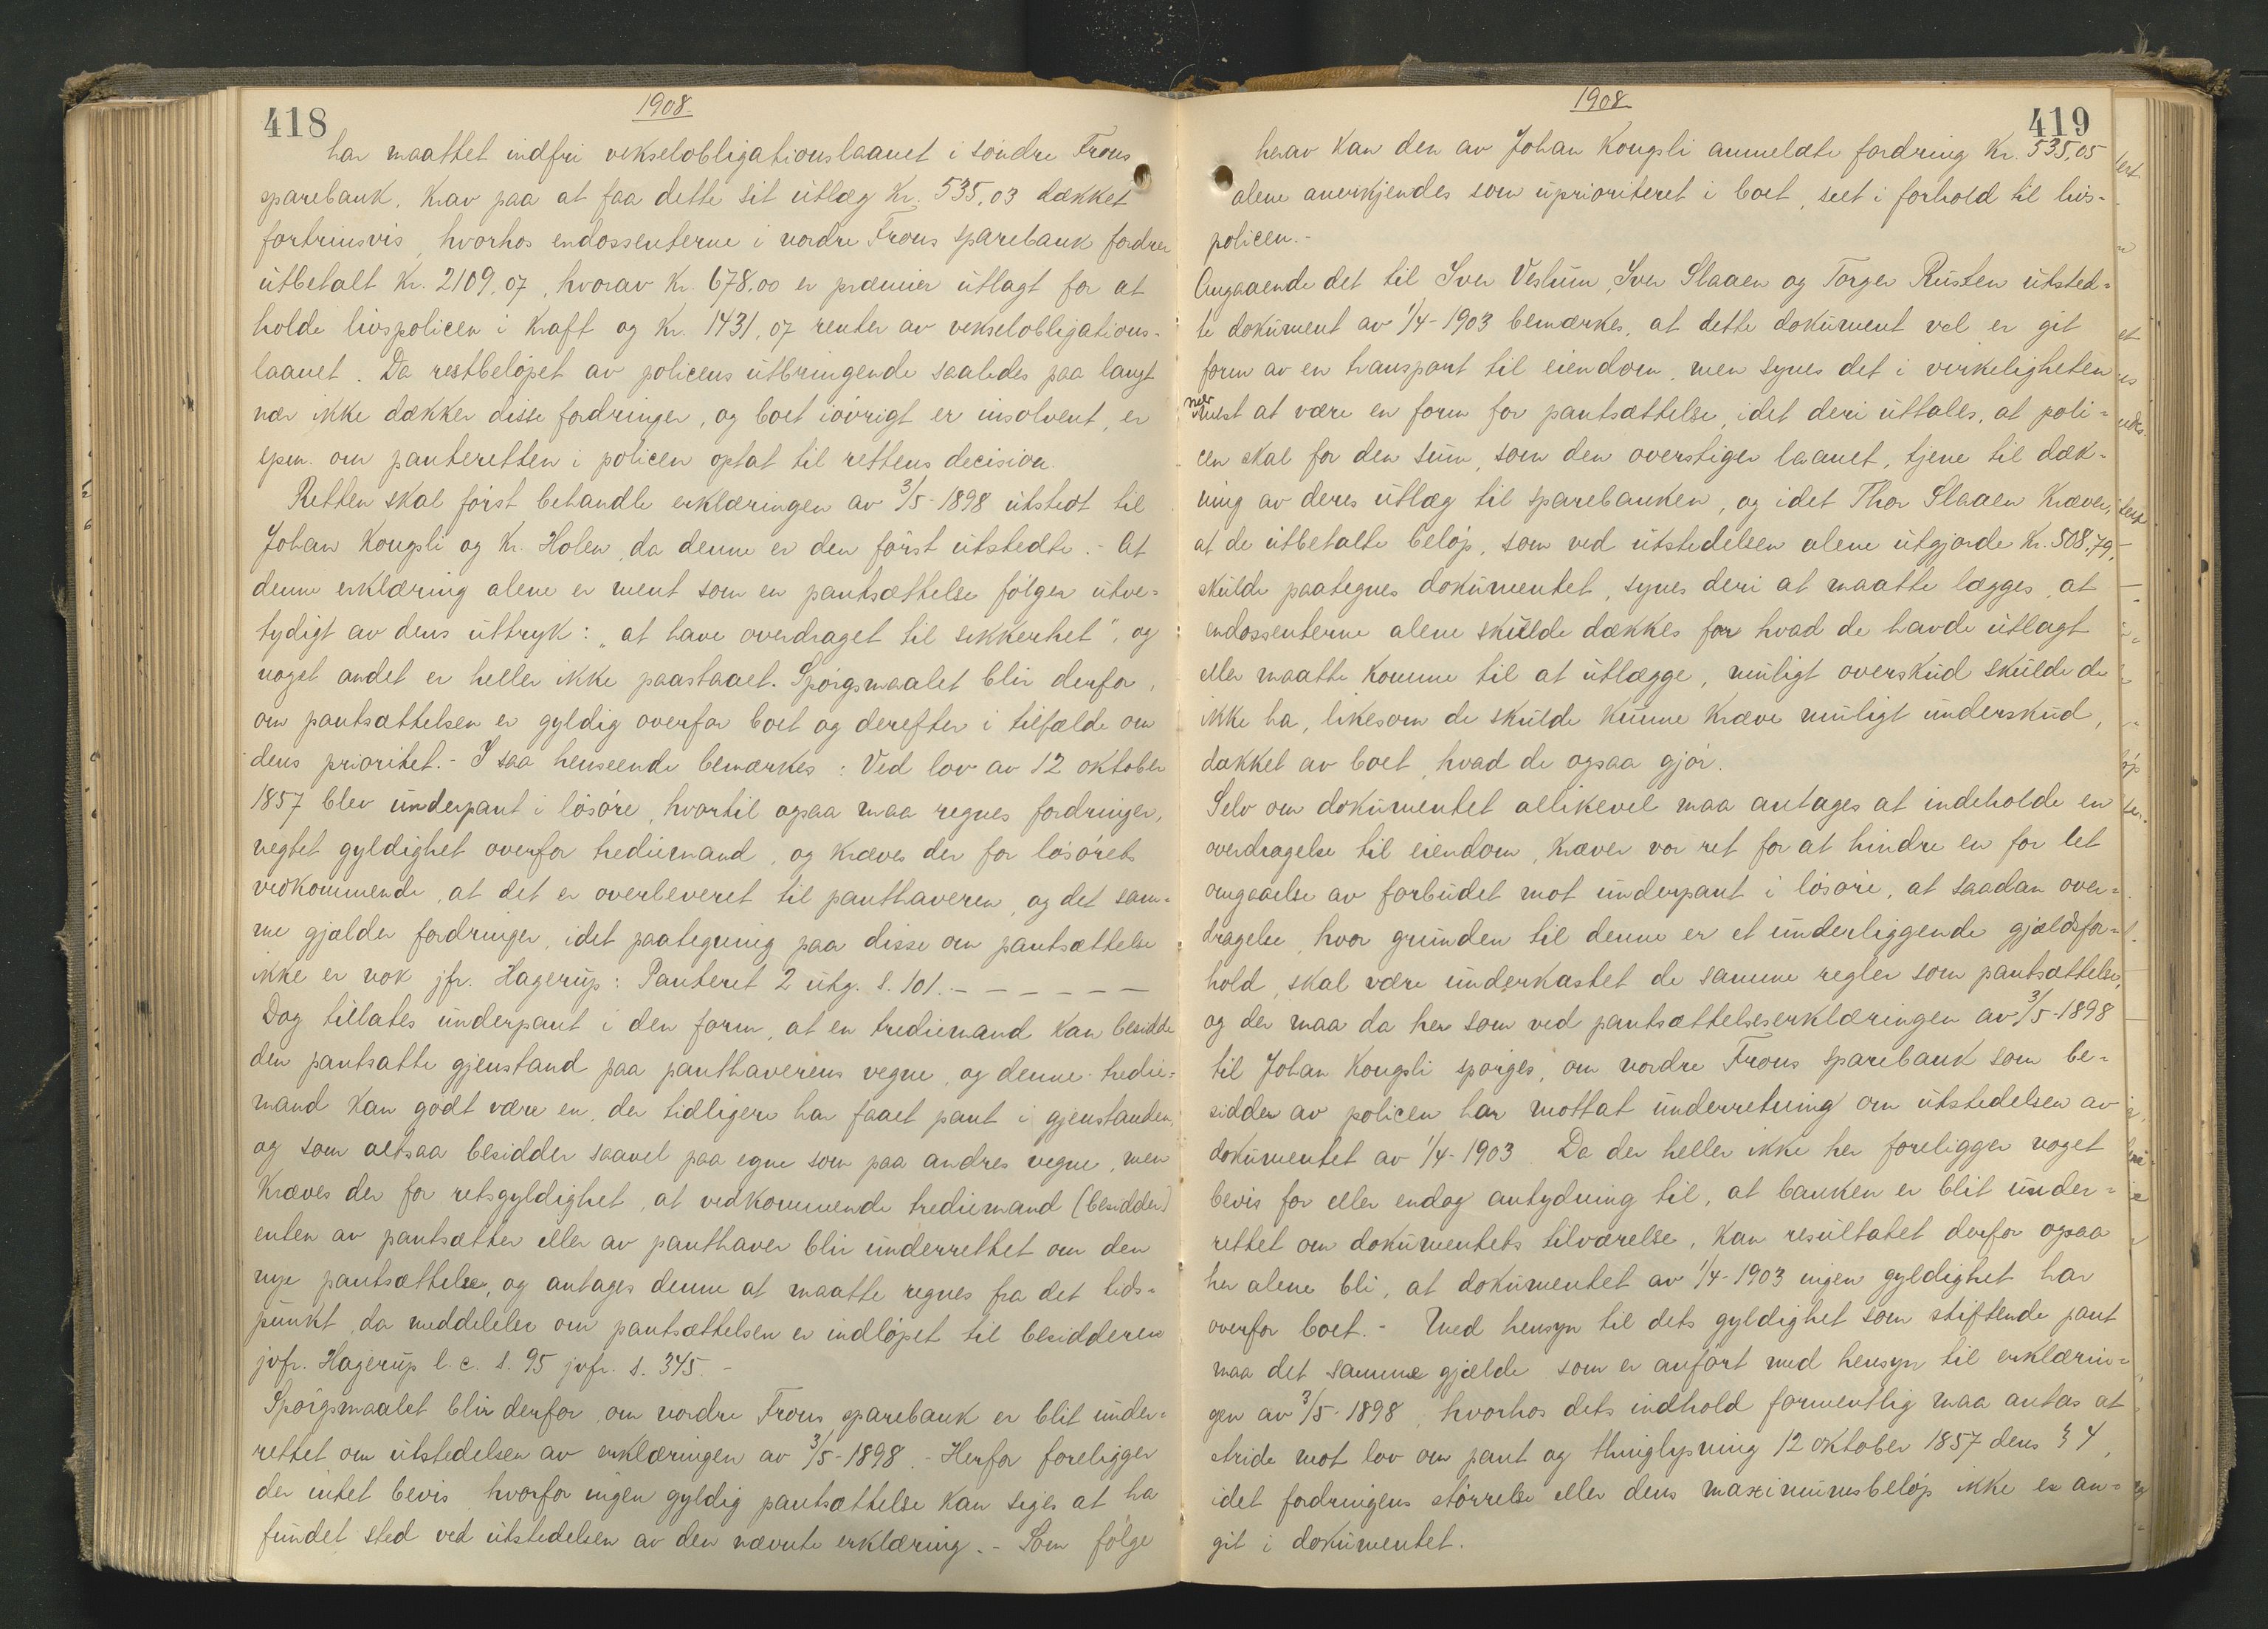 418
1908.
har maattet indfri vekselobligationslaanet i søndre Frons
sparebank, krav paa at faa dette sit utlæg Kr. 535,03 dækket
fortrinsvis, hvorhos endossenterne i nordre Frons sparebank fordrer
utbetalt Kr. 2109,07, hvorav Kr. 678,00 er præmier utlagt for at
holde livspolicen i kraft og Kr. 1431,07 renter av vekselobligations-
laanet. Da restbeløpet av policens utbringende saaledes paa langt
nær ikke dækker disse fordringer, og boet iøvrigt er insolvent, er
spm. om panteretten i policen optat til rettens decision.
Retten skal først behandle erklæringen av 3/5-1898 utstedt til
Johan Kongsli og Kr. Holen, da denne er den først utstedte. - At
denne erklæring alene er ment som en pantsættelse følger utve-
tydigt av dens uttryk: „at have overdraget til sikkerhet", og
noget andet er heller ikke paastaaet. Spørgsmaalet blir derfor,
om pantsættelsen er gyldig overfor boet og derefter i tilfælde om
dens prioritet. - I saa henseende bemærkes: Ved lov av 12 oktober
1857 blev underpant i løsøre, hvortil ogsaa maa regnes fordringer,
negtet gyldighet overfor trediemand, og kræves der for løsørets
vedkommende, at det er overleveret til panthaveren, og det sam-
me gjælder fordringer, idet paategning paa disse om pantsættelse
ikke er nok jfr. Hagerup: Panteret 2 utg. s. 101. - - - - - -
Dog tillates underpant i den form, at en trediemand kan besidde
den pantsatte gjenstand paa panthaverens vegne, og denne tredie-
mand kan godt være en, der tidligere har faaet pant i gjenstanden,
og som altsaa besidder saavel paa egne som paa andres vegne, men
kræves der for retsgyldighet, at vedkommende trediemand (besidder)
enten av pantsætter eller av panthaver blir underrettet om den
nye pantsættelse, og antages denne at maatte regnes fra det tids-
punkt, da meddelelse om pantsættelsen er indløpet til besidderen
jvfr. Hagerup l. c. s. 95 jvfr. s. 345. -
Spørgsmaalet blir derfor, om nordre Frons sparebank er blit under-
rettet om utstedelsen av erklæringen av 3/5-1898. - Herfor foreligger
der intet bevis, hvorfor ingen gyldig pantsættelse kan siges at ha
fundet sted ved utstedelsen av den nævnte erklæring. - Som følge
1908
419
herav kan den av Johan Kongsli anmeldte fordring Kr. 535,05
alene anerkjendes som uprioriteret i boet, seet i forhold til livs-
policen. -
Angaaende det til Iver Veslum, Iver Slaaen og Torger Rusten utsted-
te dokument av 1/4-1903 bemærkes, at dette dokument vel er git
form av en transport til eiendom, men synes det i virkeligheten
nærmest at være en form for pantsættelse, idet deri uttales, at poli-
cen skal for den sum, som den overstiger laanet, tjene til dæk-
ning av deres utlæg til sparebanken, og idet Thor Slaaen kræver,
at de utbetalte beløp, som ved utstedelsen alene utgjorde Kr. 508,79,
skulde paategnes dokumentet, synes deri at maatte lægges, at
endossenterne alene skulde dækkes for hvad de havde utlagt
eller maatte komme til at utlægge, muligt overskud skulde de
ikke ha, likesom de skulde kunne kræve muligt underskud,
dækket av boet, hvad de ogsaa gjør.
Selv om dokumentet allikevel maa antages at indeholde en
overdragelse til eiendom, kræver vor ret for at hindre en for let
omgaaelse av forbudet mot underpant i løsøre, at saadan over-
dragelse, hvor grunden til denne er et underliggende gjældsfor-
hold, skal være underkastet de samme regler som pantsættelse,
og der maa da her som ved pantsættelseserklæringen av 3/5-1898
til Johan Kongsli spørges, om nordre Frons sparebank som be-
sidder av policen har mottat underretning om utstedelsen av
dokumentet av 1/4-1903. Da der heller ikke her foreligger noget
bevis for eller endog antydning til, at banken er blit under-
rettet om dokumentets tilværelse, kan resultatet derfor ogsaa
her alene bli, at dokumentet av 1/4-1903 ingen gyldighet har
overfor boet. - Med hensyn til dets gyldighet som stiftende pant
maa det samme gjælde som er anført med hensyn til erklærin-
gen av 3/5-1898, hvorhos dets indhold formentlig maa antas at
stride mot lov om pant og thinglysning 12 oktober 1857 dens § 4,
idet fordringens størrelse eller dens maximumsbeløp ikke er an-
git i dokumentet.